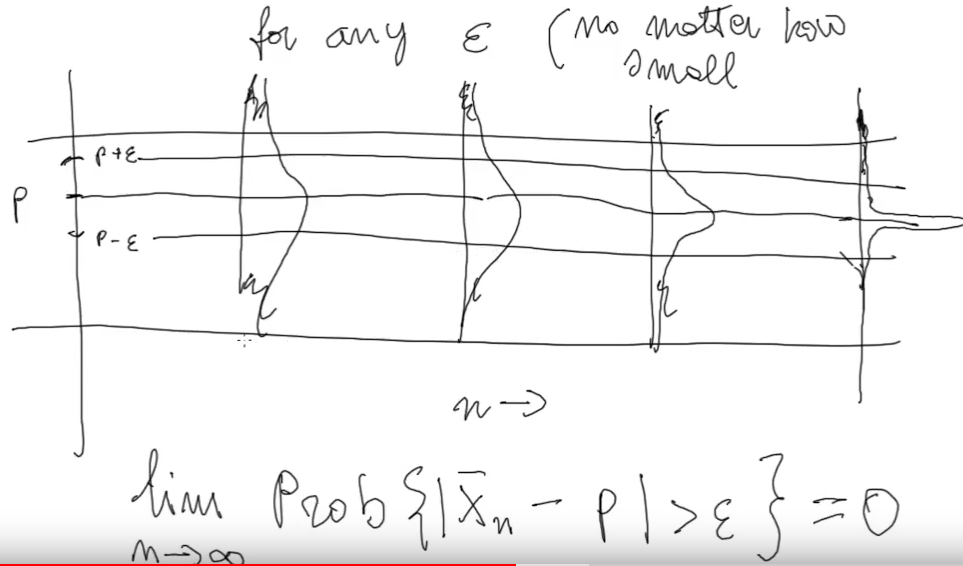 for any ε (no matter how
small
p+ε
p
p-ε
n →
lim Prob{|X̄ₙ - p| > ε} = 0
n→∞